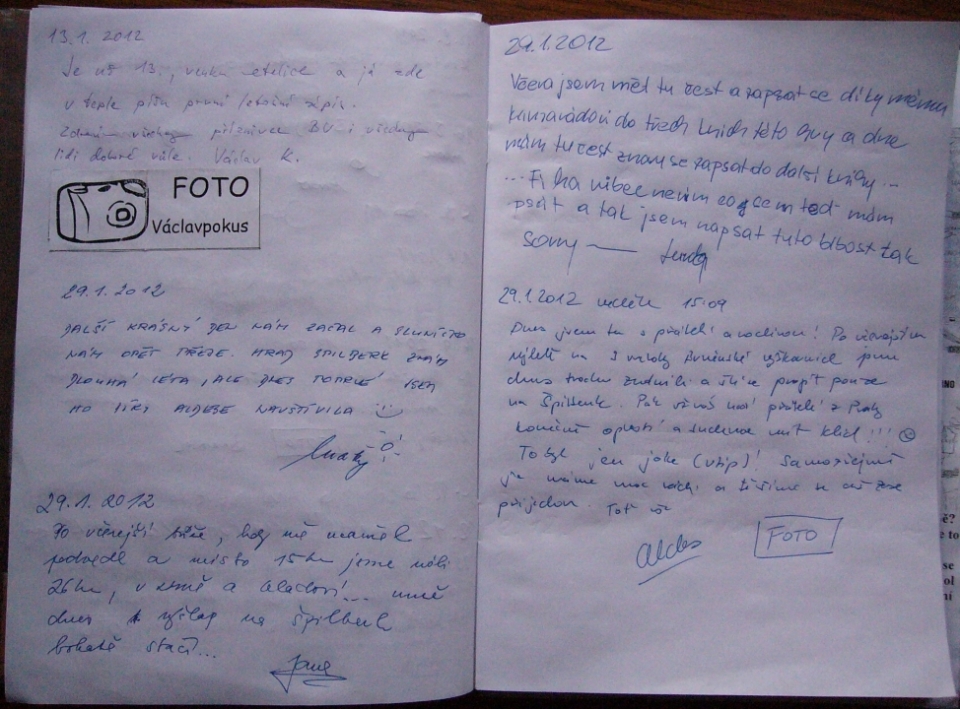 13.1. 2012
Je už 13., venku metelice a já zde
v teple píšu první letošní zápis.
Zdraví všechny příznivce BV i všechny
lidi dobré vůle. Václav K.
FOTO
Václavpokus
29.1.2012
DALŠÍ KRÁSNÝ DEN NÁM ZAČAL A SLUNÍČKO
NÁM OPĚT HŘEJE. HRAD ŠPILBERK ZNÁM
DLOUHÁ LÉTA, ALE DNES POPRVÉ JSEM
HO DÍKY ALDEBE NAVŠTÍVILA
29.1.2012
Po včerejší túře, kdy mě manžel
podvedl a místo 15km jsme ušli
26km, v zimě a hladoví... mně
dnes výšlap na Špilberk
bohatě stačí...
Jana
29.1.2012
Včera jsem měl tu čest a zapsat se díky mému
kamarádovi do třech knih této hry a dnes
mám tu čest znovu se zapsat do další knihy...
... Fi ha vůbec nevim co sem teď mám
psát a tak jsem napsat tuto blbost tak
Sorry
29.1.2012 neděle 15:09
Dnes jsem tu s přáteli a rodinou! Po včerejším
výletě na 3 vrcholy vyškovice jsme
dnes trochu zvolnili a šli se projít pouze
na Špilberk. Pak už nás naši přátelé z Prahy
konečně opustí a budeme mít klid!!!
To byl jen joke (vtip)! Samozřejmě
je máme moc rádi a těšíme se až zase
přijedou. Toť vše
Aldeb
FOTO